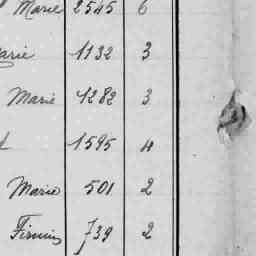 Marie 2545 6
arie 1132 3
Marie 1282 3
1595 4
Marie 501 2
Firmin 739 2